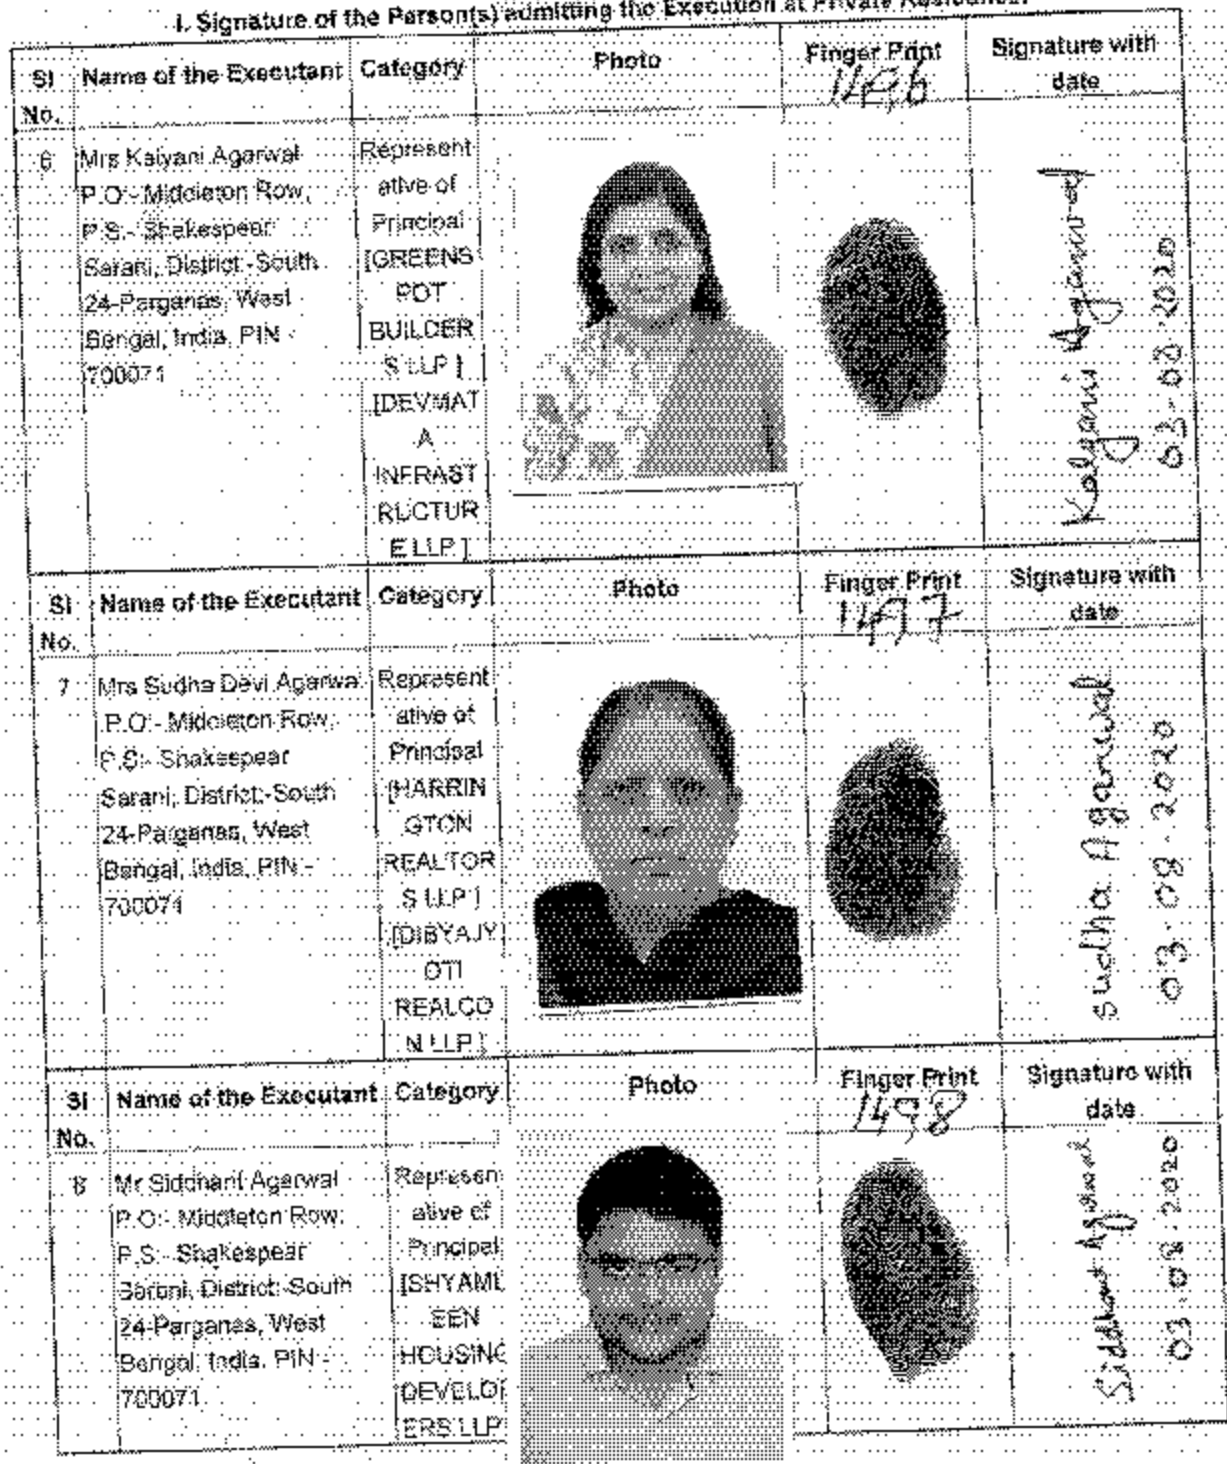 I. Signature of the Person(s) admitting the Execution at Private Residence.
Sl No. Name of the Executant Category Photo Finger Print Signature with date
1496
6 Mrs Kalyani Agarwal
P.O:- Middleton Row,
P.S:- Shakespear
Sarani, District:-South
24-Parganas, West
Bengal, India, PIN -
700071
Represent
ative of
Principal
[GREENS
POT
BUILDER
S LLP ]
[DEVMAT
A
INFRAST
RUCTUR
E LLP ]
Kalyani Agarwal
03-08-2020
Sl No. Name of the Executant Category Photo Finger Print Signature with date
1497
7 Mrs Sudha Devi Agarwal
P.O:- Middleton Row,
P.S:- Shakespear
Sarani, District:-South
24-Parganas, West
Bengal, India, PIN -
700071
Represent
ative of
Principal
[HARRIN
GTON
REALTOR
S LLP ]
[DIBYAJY
OTI
REALCO
N LLP ]
sudha Agarwal
03.08.2020
Sl No. Name of the Executant Category Photo Finger Print Signature with date
1498
8 Mr Siddhant Agarwal
P.O:- Middleton Row,
P.S:- Shakespear
Sarani, District:-South
24-Parganas, West
Bengal, India, PIN -
700071
Represen
ative of
Principal
[SHYAML
EEN
HOUSING
DEVELOP
ERS LLP
Siddhant Agarwal
03.08.2020